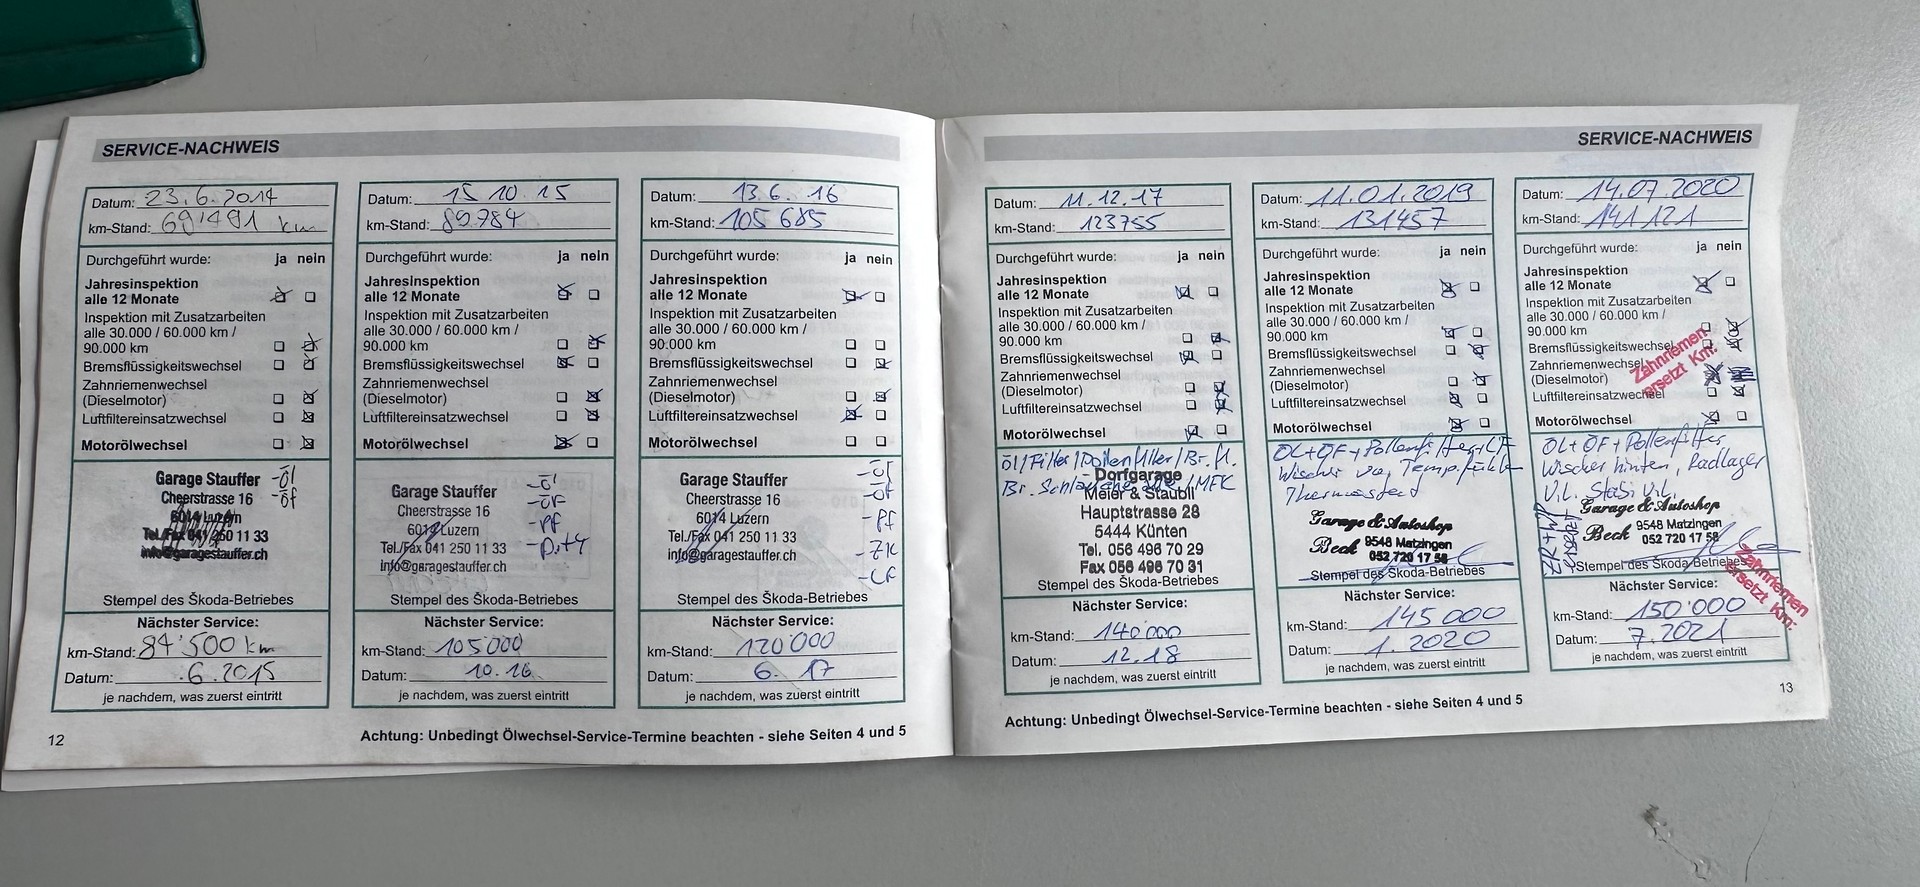 SERVICE-NACHWEIS
Datum: 23.6.2014
km-Stand: 69'491 km
Durchgeführt wurde: ja nein
Jahresinspektion
alle 12 Monate
Inspektion mit Zusatzarbeiten
alle 30.000 / 60.000 km /
90.000 km
Bremsflüssigkeitswechsel
Zahnriemenwechsel
(Dieselmotor)
Luftfiltereinsatzwechsel
Motorölwechsel
Garage Stauffer
Cheerstrasse 16
6014 Luzern
Tel./Fax 041 250 11 33
info@garagestauffer.ch
-Öl
-Öf
Stempel des Škoda-Betriebes
Nächster Service:
km-Stand: 84'500 km
Datum: 6.2015
je nachdem, was zuerst eintritt
12
Datum: 15 10.15
km-Stand: 89.784
Durchgeführt wurde: ja nein
Jahresinspektion
alle 12 Monate
Inspektion mit Zusatzarbeiten
alle 30.000 / 60.000 km /
90.000 km
Bremsflüssigkeitswechsel
Zahnriemenwechsel
(Dieselmotor)
Luftfiltereinsatzwechsel
Motorölwechsel
Garage Stauffer
Cheerstrasse 16
6014 Luzern
Tel./Fax 041 250 11 33
info@garagestauffer.ch
-Öl
-ÖF
-PF
Stempel des Škoda-Betriebes
Nächster Service:
km-Stand: 105'000
Datum: 10.16
je nachdem, was zuerst eintritt
Datum: 13.6.16
km-Stand: 105 685
Durchgeführt wurde: ja nein
Jahresinspektion
alle 12 Monate
Inspektion mit Zusatzarbeiten
alle 30.000 / 60.000 km /
90.000 km
Bremsflüssigkeitswechsel
Zahnriemenwechsel
(Dieselmotor)
Luftfiltereinsatzwechsel
Motorölwechsel
Garage Stauffer
Cheerstrasse 16
6014 Luzern
Tel./Fax 041 250 11 33
info@garagestauffer.ch
-Öl
-ÖF
-PF
-ZK
-LF
Stempel des Škoda-Betriebes
Nächster Service:
km-Stand: 120'000
Datum: 6. 17
je nachdem, was zuerst eintritt
Achtung: Unbedingt Ölwechsel-Service-Termine beachten - siehe Seiten 4 und 5
SERVICE-NACHWEIS
Datum: 11.12.17
km-Stand: 123755
Durchgeführt wurde: ja nein
Jahresinspektion
alle 12 Monate
Inspektion mit Zusatzarbeiten
alle 30.000 / 60.000 km /
90.000 km
Bremsflüssigkeitswechsel
Zahnriemenwechsel
(Dieselmotor)
Luftfiltereinsatzwechsel
Motorölwechsel
Öl/Filter/Pollenfilter/Br.fl.
Br. Schläuche /MFK
Dorfgarage
Meier & Stäubli
Hauptstrasse 28
5444 Künten
Tel. 056 496 70 29
Fax 056 496 70 31
Stempel des Škoda-Betriebes
Nächster Service:
km-Stand: 140'000
Datum: 12.18
je nachdem, was zuerst eintritt
Datum: 11.01.2019
km-Stand: 131457
Durchgeführt wurde: ja nein
Jahresinspektion
alle 12 Monate
Inspektion mit Zusatzarbeiten
alle 30.000 / 60.000 km /
90.000 km
Bremsflüssigkeitswechsel
Zahnriemenwechsel
(Dieselmotor)
Luftfiltereinsatzwechsel
Motorölwechsel
ÖL+ÖF+Pollenfilter+LF
Wischer vo, Temp.fühler
Thermostat
Garage & Autoshop
Beck 9548 Matzingen
052 720 17 58
Stempel des Škoda-Betriebes
Nächster Service:
km-Stand: 145 000
Datum: 1.2020
je nachdem, was zuerst eintritt
Datum: 14.07.2020
km-Stand: 141 121
Durchgeführt wurde: ja nein
Jahresinspektion
alle 12 Monate
Inspektion mit Zusatzarbeiten
alle 30.000 / 60.000 km /
90.000 km
Bremsflüssigkeitswechsel
Zahnriemenwechsel
(Dieselmotor)
Luftfiltereinsatzwechsel
Motorölwechsel
Zahnriemen
ersetzt Km:
ÖL+ÖF+Pollenfilter
Wischer hinten, Radlager
V.L. Stabi V.L.
ZR+WP
ersetzt
Garage & Autoshop
Beck 9548 Matzingen
052 720 17 58
Stempel des Škoda-Betriebes
Zahnriemen
ersetzt Km:
Nächster Service:
km-Stand: 150'000
Datum: 7.2021
je nachdem, was zuerst eintritt
Achtung: Unbedingt Ölwechsel-Service-Termine beachten - siehe Seiten 4 und 5
13